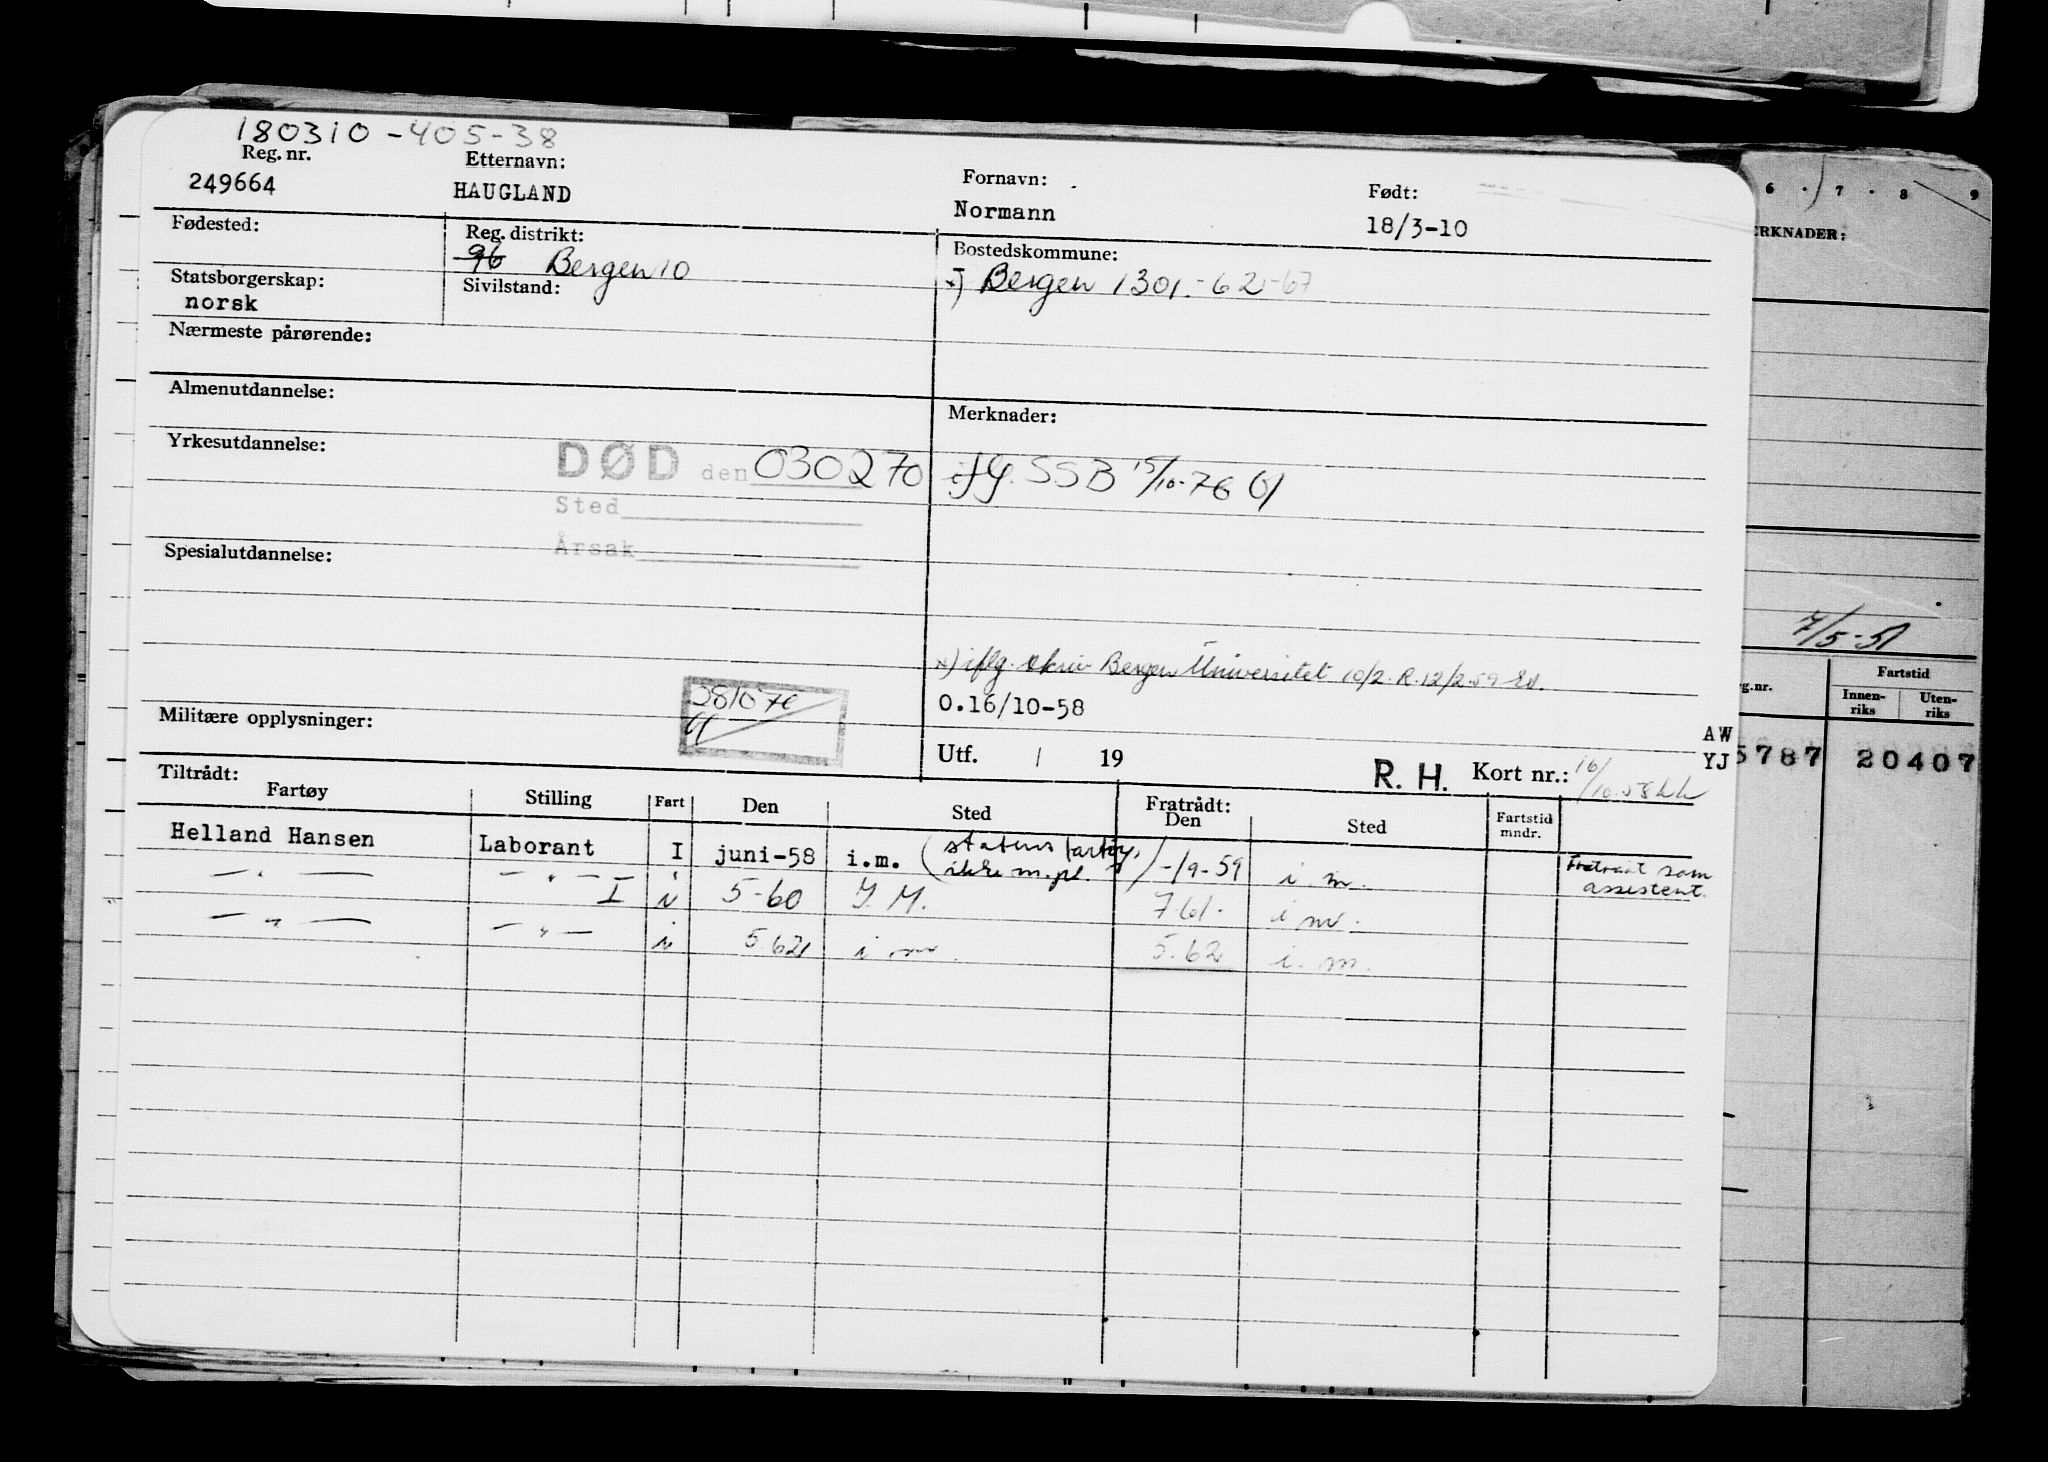 180310-405-38
Reg. nr. Etternavn: Fornavn: Født:
249664 HAUGLAND Normann 18/3-10
Fødested: Reg. distrikt: Bostedskommune:
96 Bergen 10 x) Bergen 1301.-62-67
Statsborgerskap: Sivilstand:
norsk
Nærmeste pårørende:
Almenutdannelse: Merknader:
Yrkesutdannelse:
DØD den 030270 iflg. SSB 15/10-76
Sted
Årsak
Spesialutdannelse:
x) iflg. skriv Bergen Universitet 10/2. R. 12/2.59
281076
0.16/10-58
Militære opplysninger:
Utf. / 19 R. H. Kort nr.: 16/10.58
AW
YJ
Tiltrådt: Fratrådt:
Fartøy Stilling Fart Den Sted Den Sted Fartstid mndr.
Helland Hansen Laborant I juni-58 i.m. (statens fartøy, ikke m.pl.) -/9-59 i.m. Fratrådt som assistent.
—"— —"— I i 5-60 I.M. 761. i m.
—"— —"— i 5.62 i m. 5.62 i. m.
6 . 7 . 8 9
ERKNADER:
7/5-51
g.nr. Fartstid
Innen-riks Uten-riks
5787 20407